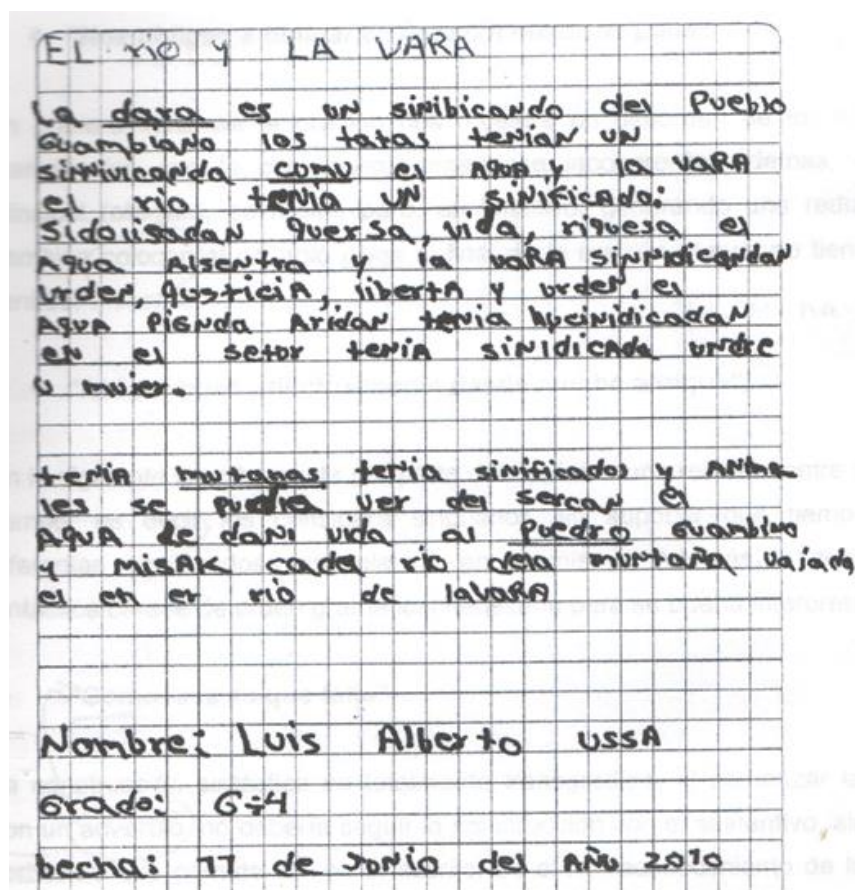 EL rio y LA VARA
La dara es un sinibicando del Pueblo
Guambiano los tatas tenian un
sinivicanda comu el Agua y la VARA
el rio tenia un sinificado:
Sidolisadan querSa, vida, riquesa el
Agua Alsentra y la vara sinnidicandan
urder, qusticia, libertA y urder, el
AguA PiGnda Aridan tenia
en el setor tenia sinidicada undre
u mujer.
teniA muntanas tenia sinificados y Anima
les se pudia ver del sercan el
AguA de dani vida al puedro Guambino
y misAk cadel rio dela muntaña vaiada
el en er rio de lavaRA
Nombre: Luis Alberto USSA
Grado: 6÷4
becha: 11 de Junio del Añu 2010